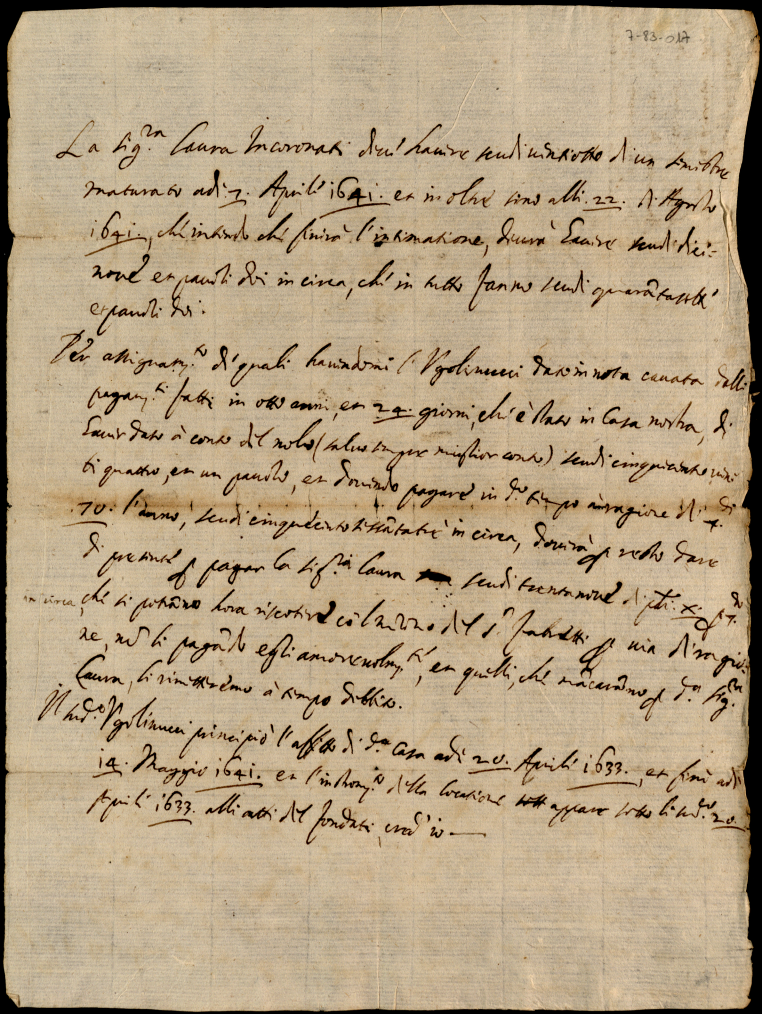 7-83-017
La Sig.ra Laura Incoronati devé havere scudi vintiotto di un semestre
maturato adi 7. Aprile 1641. et in oltre sino alli 22. di Agosto
1641., ché intendo ché finirà l'intimatione, doverà havere scudi dici=
nové et pauoli doi in circa, ché in tutto fanno scudi quarātasetté
et pauoli doi.
Per assignam.to dé quali havendomi l'Ugolinucci dato in nota cavata dalli
pagam.ti fatti in otto anni, et 24. giorni, ché è stato in Casa nostra, di
haver dato à conto del nolo (salvo sempre miglior conto) scudi cinquecento vin
ti quattro, et un pauolo, et dovendo pagare in d.o tempo à ragione di di
70. l'anno, scudi cinquecento sessātatrè in circa, doverà p resto dare
di presente p pagar la Sig.ra Laura scudi trentanové di
in circa, ché si potrāno hora riscotere col mezzo del S.r Fabretti p via di ragio=
ne, nō li pagādo egli amorevolm.te, et quelli, ché mācarāno p d.a Sig.ra
Laura, li rimetteremo à tempo debito.
Il sud.o Ugolinucci principiò l'affitto di d.a Casa adi 20. Aprile 1633., et finì adi
14. Maggio 1641. et l'instrom.to della locatione appare sotto li sud.o 20.
Aprile 1633. alli atti del fondati, cred'io